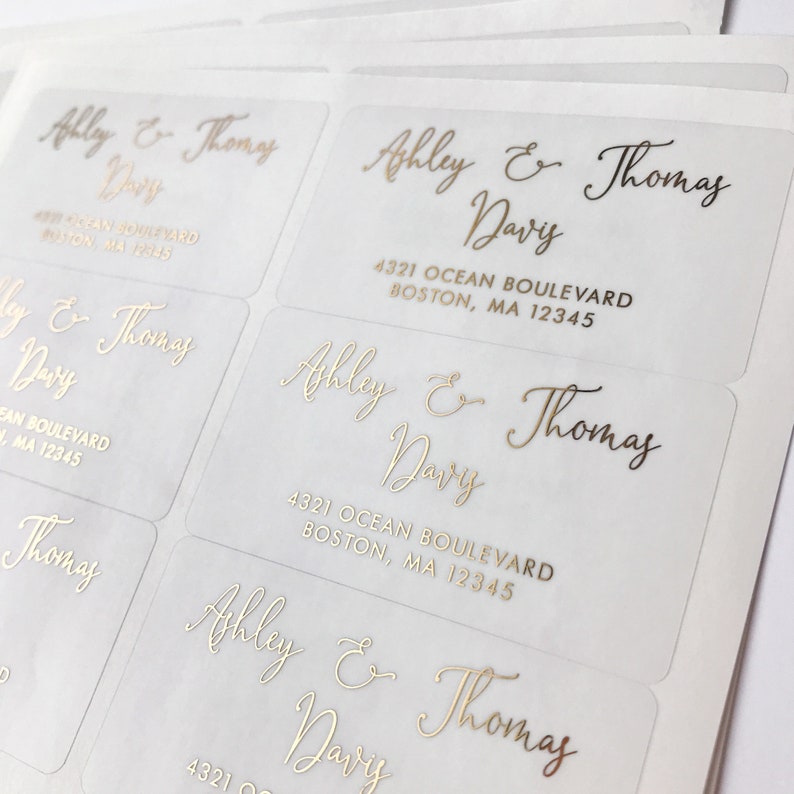 Ashley & Thomas
Davis
4321 OCEAN BOULEVARD
BOSTON, MA 12345
Ashley & Thomas
Davis
4321 OCEAN BOULEVARD
BOSTON, MA 12345
ley & Thomas
Davis
EAN BOULEVARD
N, MA 12345
Ashley & Thomas
Davis
4321 OCEAN BOULEVARD
BOSTON, MA 12345
Thomas
D
Ashley & Thomas
Davis
4321 OCEAN